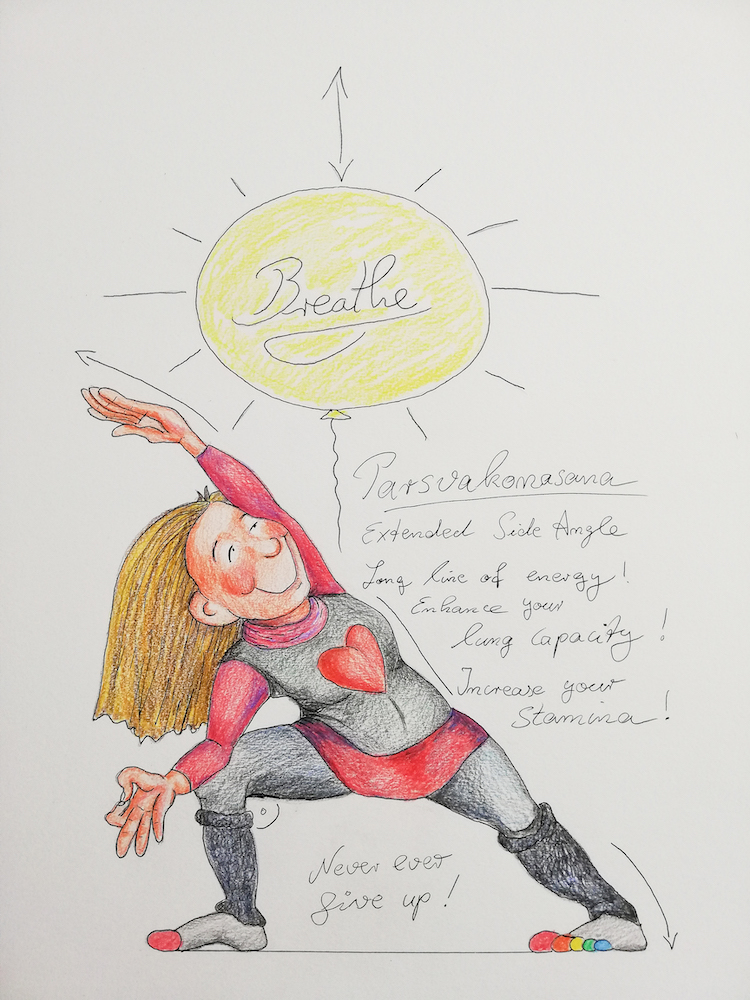 Breathe
Parsvakonasana
Extended Side Angle
Long line of energy!
Enhance your
lung capacity!
Increase your
Stamina!
Never ever
give up!